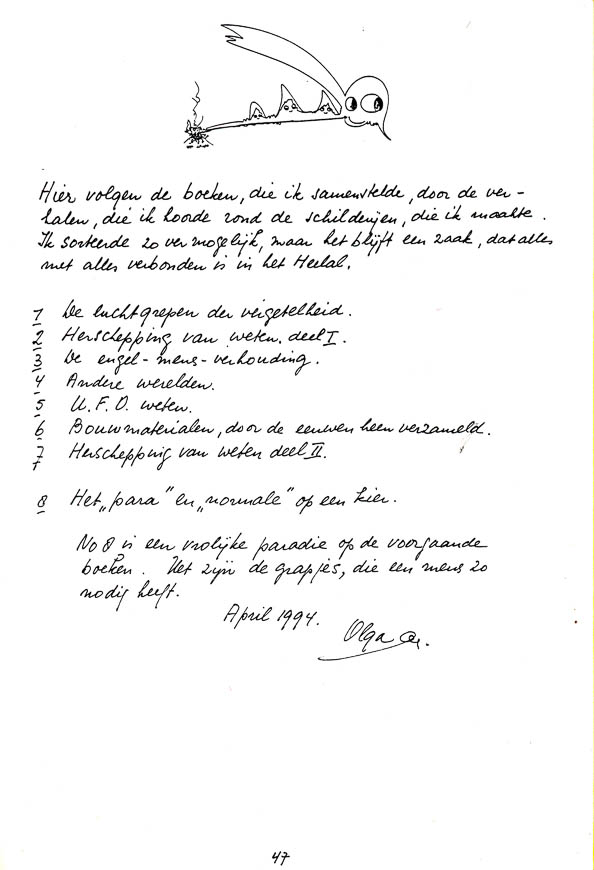 Hier volgen de boeken, die ik samenstelde, door de ver-
halen, die ik hoorde rond de schilderijen, die ik maakte.
Ik sorteerde zo ver mogelijk, maar het blijft een zaak, dat alles
met alles verbonden is in het Heelal.
1 De luchtgrepen der vergetelheid.
2 Herschepping van weten. deel I.
3 De engel-mens-verhouding.
4 Andere werelden.
5 U.F.O. weten.
6 Bouwmaterialen, door de eeuwen heen verzameld.
7 Herschepping van weten deel II.
8 Het „para" en „normale" op een kier.
No 8 is een vrolijke paradie op de voorgaande
boeken. Het zijn de grapjes, die een mens zo
nodig heeft.
April 1994.
Olga
47